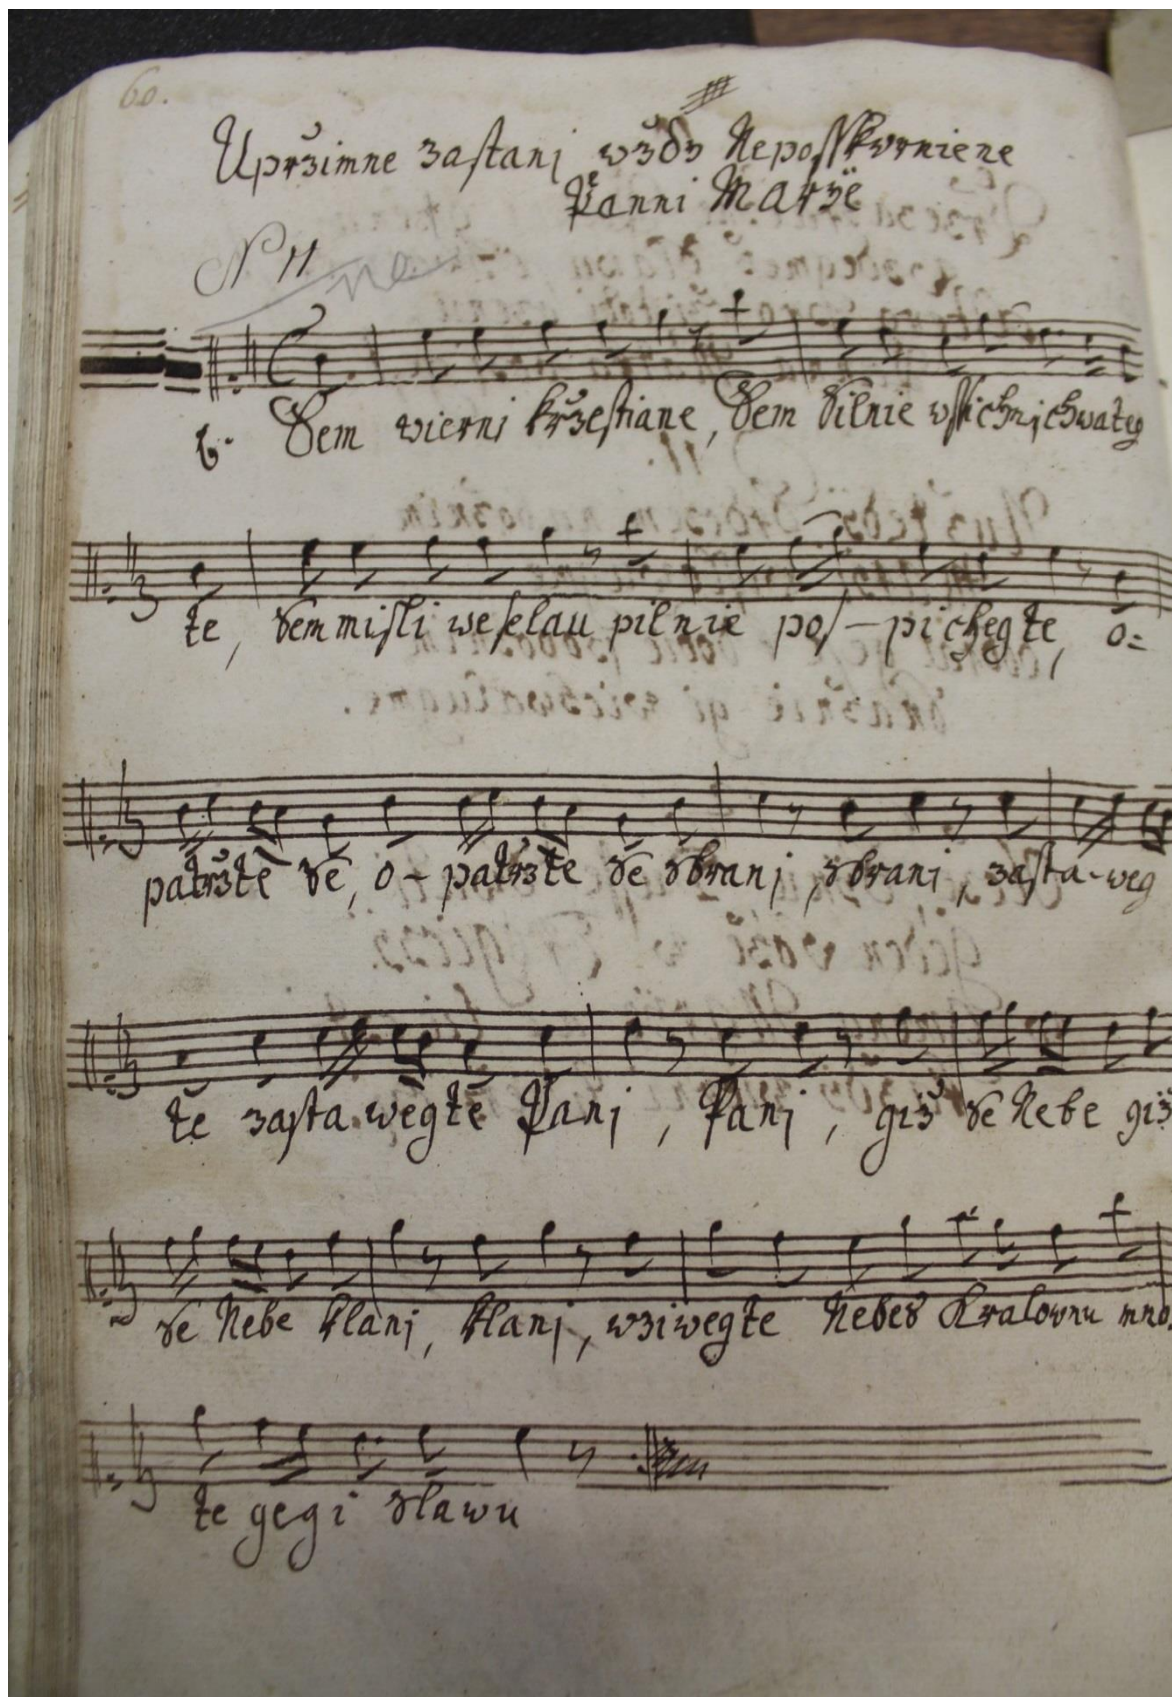 60.
Uprzimne zastani wzdy Neposskvrniene
Panni Marÿe
N 11
No.
6. Sem wierni krzestiane, Sem silnie wssichni chwateg
te, sem misli weselau pilnie pos-pichegte, o=
patrzte se, o-patrzte se zbrani, zbrani, zasta-weg
te zasta wegte Pani, Pani, giz se Nebe giz
se Nebe klani, klani, wziwegte Nebes Kralownu mno.
te gegi slawu